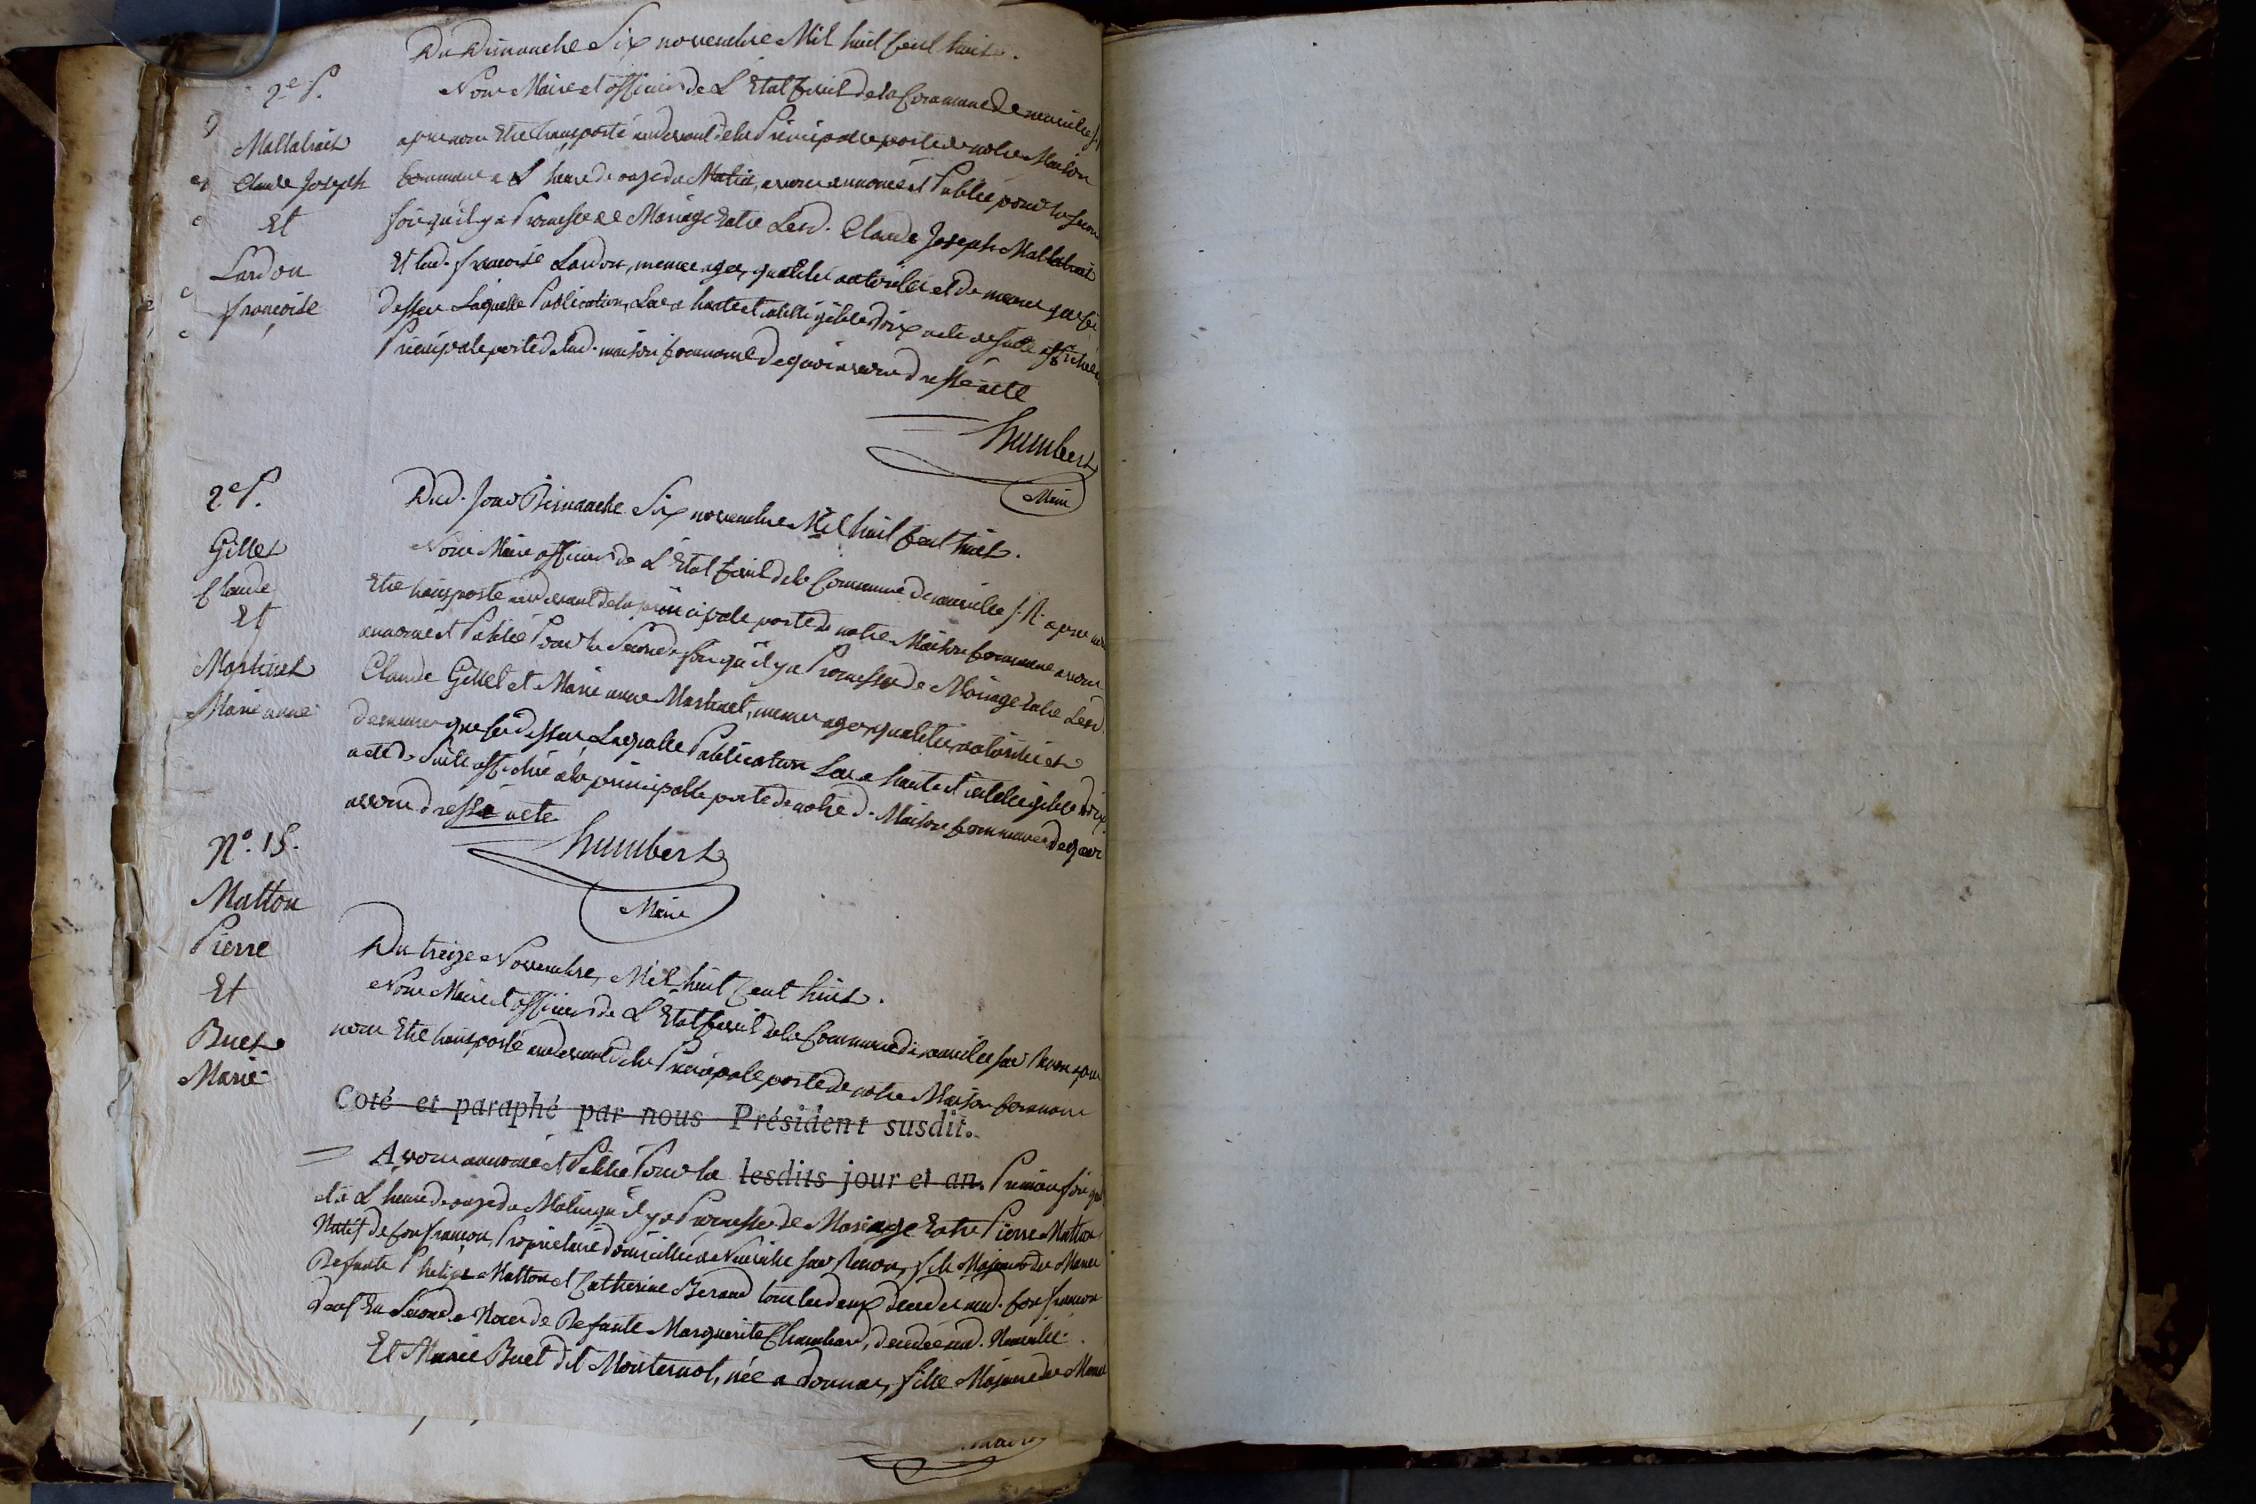 Du Dimanche Six novembre Mil huit Cent huit.
2e P.
Nous Maire et officier de L'Etat Civil de la Commune de neuville
Mallabrait
apres nous Etre transporté au devant de la Principale porte de notre Maison
Claude Joseph
Commune a L'heure de onze du Matin, avons annoncé et Publié pour la secon
Et
fois qu'il y a Promesse de Mariage Entre Lesd. Claude Joseph Mallabrait
Lardon
Et lad. francoise Lardon, memes ages, qualités autorités et demeures que Ci
francoise
dessus Laquelle Publication, Lue a haute et intelligible voix a été de suitte affichée
Principale porte de lad. maison Commune de quoi avons dressé acte
humbert
Maire
2e P.
Dud. Jour Dimanche Six novembre Mil huit Cent huit.
Gillet
Claude
Nous Maire officier de L'Etat Civil de la Commune de neuville s. R. apres nous
Et
Etre transporté au devant de la principale porte de notre Maison Commune avons
annoncé et Publié Pour la Seconde fois qu'il y a Promesse de Mariage Entre Lesd.
Martinet
Claude Gillet et Marie anne Martinet, memes ages, qualités autorités et
Marie anne
demeures que Ci dessus Laquelle Publication Lue a haute et intelligible voix
a été de Suite affichée a la principalle porte de notred. Maison Commune de quoi
avons dressé acte
humbert
Maire
No. 15.
Matton
Pierre
Du treize Novembre, Mil huit Cent huit.
Et
Nous Maire et officier de L'Etat Civil de la Commune de neuville sur Renon apres
Buet
nous Etre transporté au devant de la Principale porte de notre Maison Commune
Marie
Coté et paraphé par nous Président susdit.
Avons annoncé et Publié Pour la lesdits jour et an. Premiere fois
et a L'heure de onze du Matin qu'il y a Promesse de Mariage Entre Pierre Matton
Natif de Confrancon, Proprietaire domicillié a Neuville sur Renon, fils Majeur des Maries
Defunts Philipe Matton et Catherine Beraud tous les deux decedes aud. Confrancon
veuf En Secondes Noces de Defunte Marguerite Chambard, decedée aud. Neuville.
Et Marie Buet dit Monternot, née a , fille Majeure des Maries